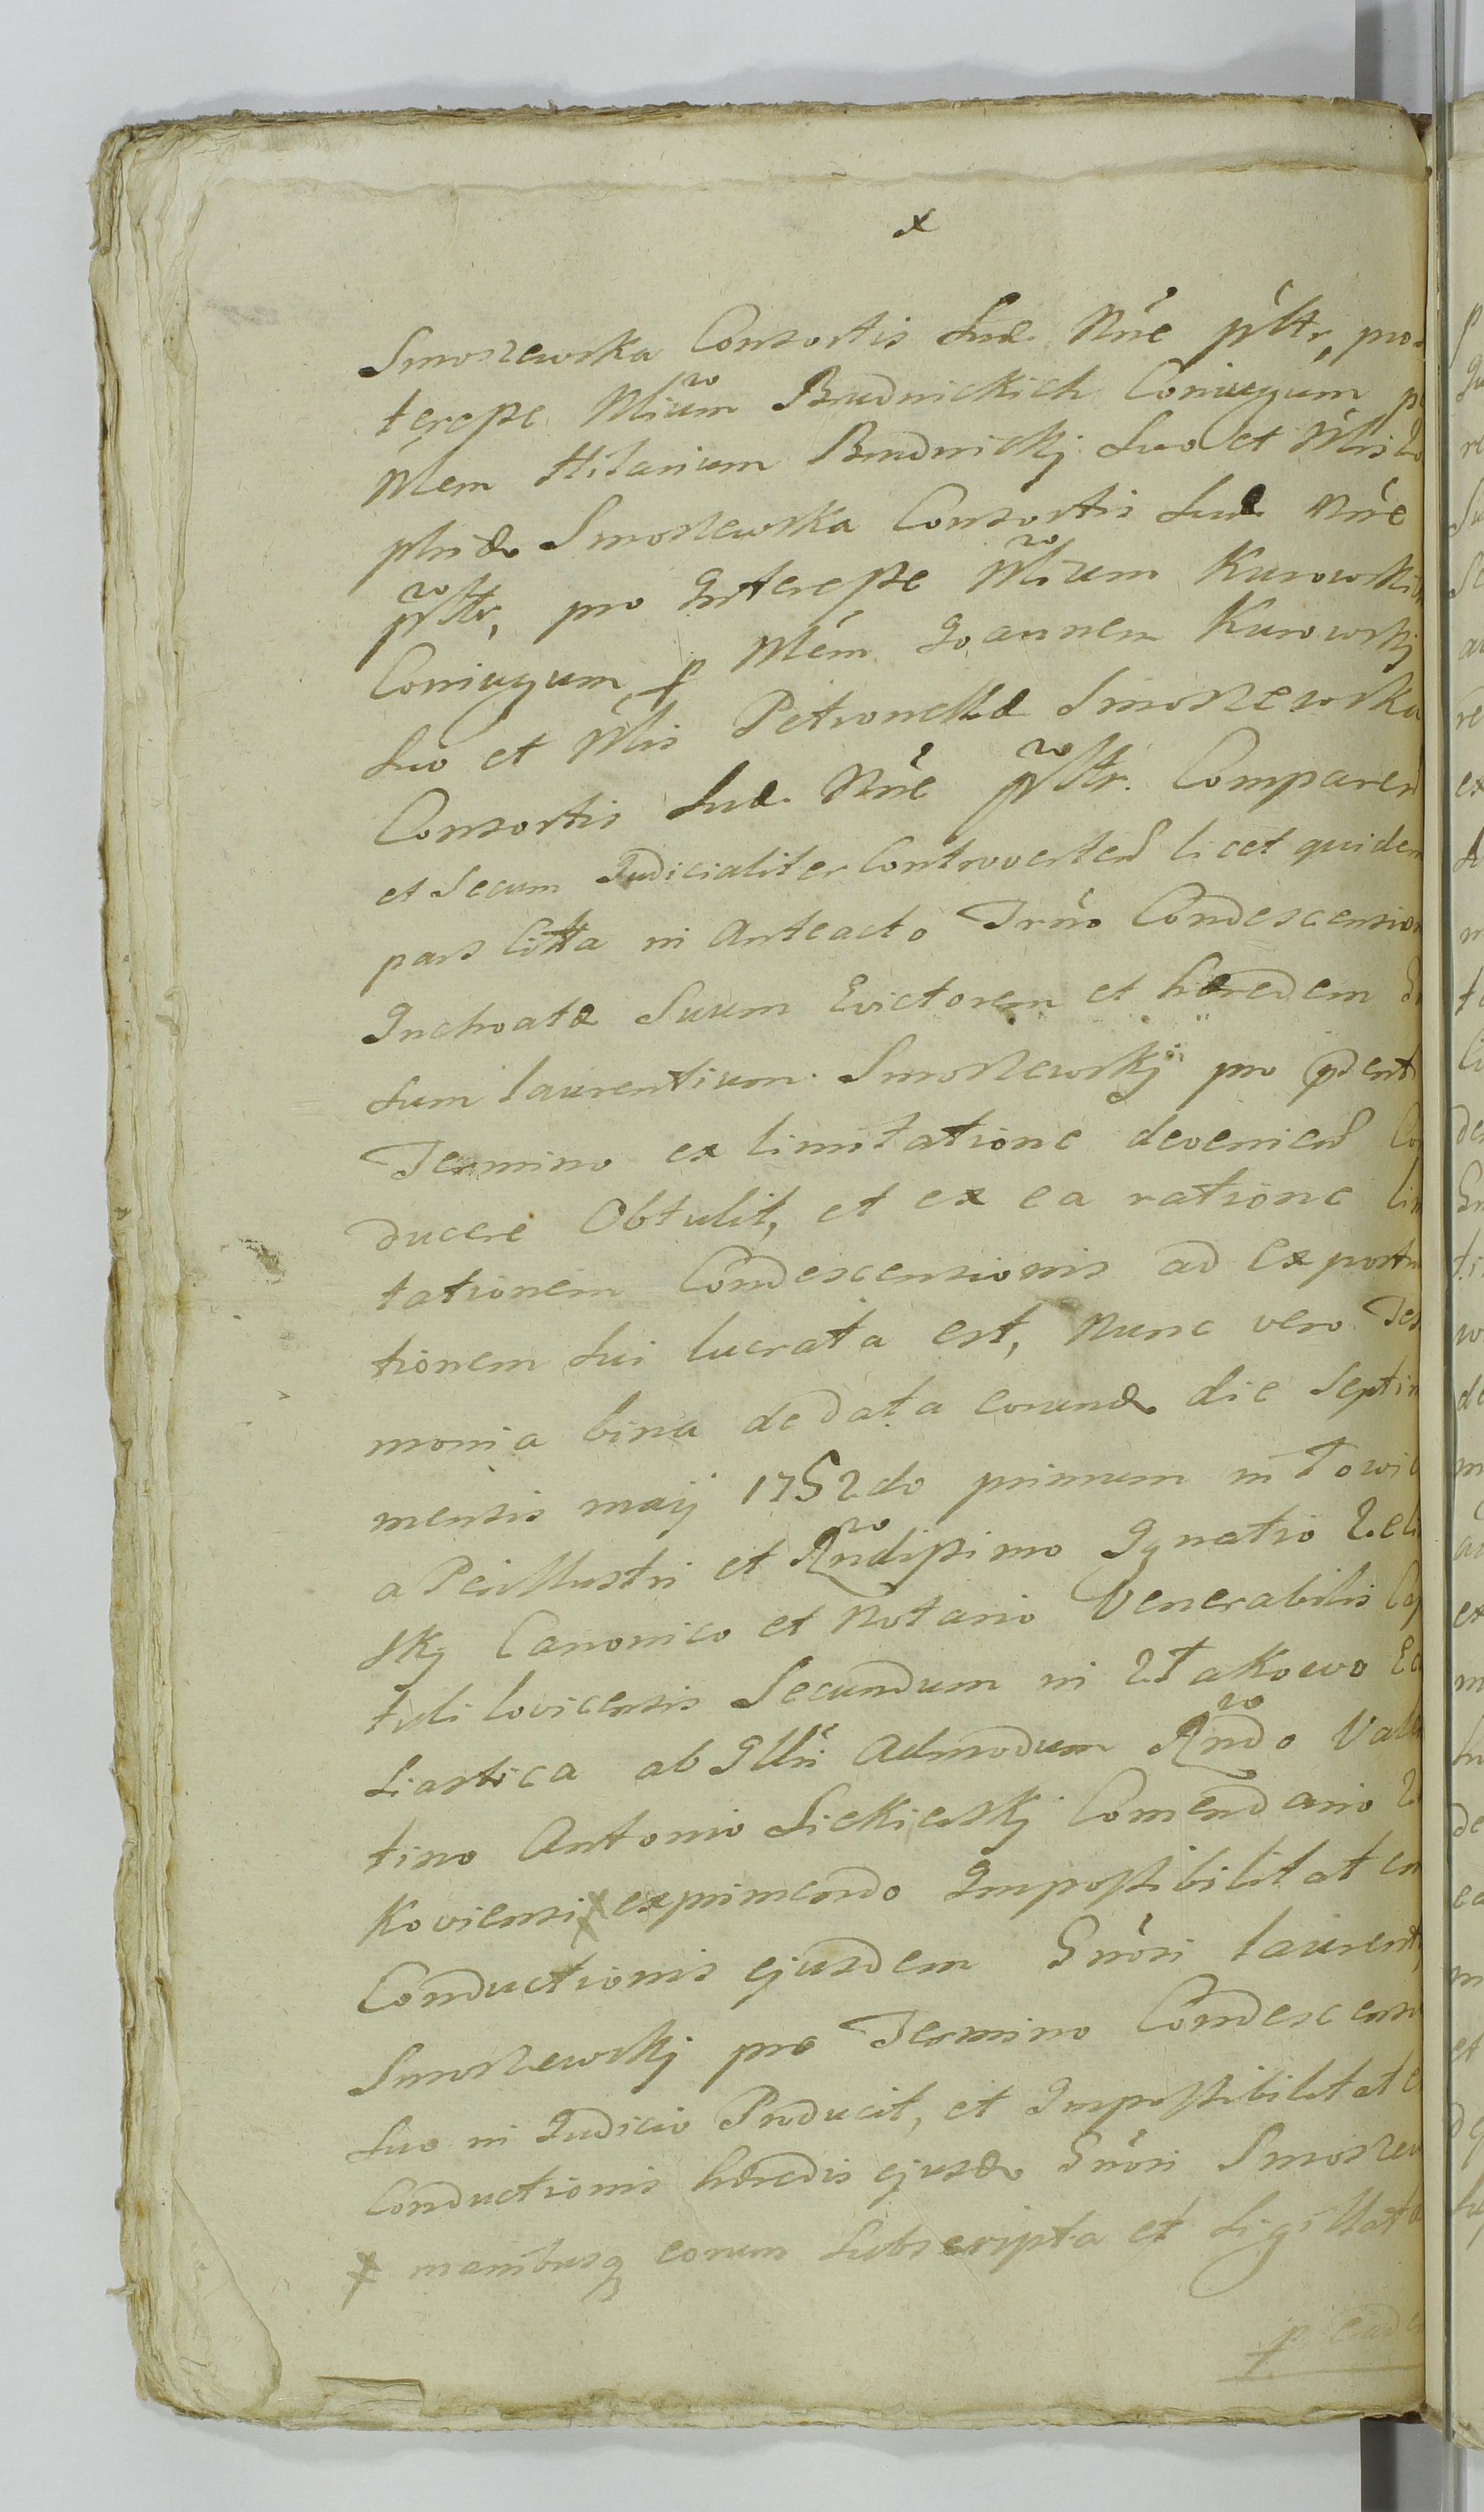 x
Smoszewska Consortis Suæ Nnê pñltr, pro
terepse Mlium Brudnickich Coniugum p
Mlem Hilarium Brudnickj Suo et Mlis Zo
phiæ Smoszewska Consortis Suæ Nnê
pltr, pro Interesse Mlium Kurowskich
Coniugum p Mlem Joannem Kurowskj
Suo et Mlis Petronellæ Smoszewska
Consortis Suæ Nnê pltr. Comparen
et Secum Judicialiter Controverten licet quidem
pars Citta in Anteacto Trno Condescension
Inchoatæ Suum Evictorem et hæredem
Sum Laurentium Smoszewskj pro pdent
Termino ex limitatione devenien Co
ducere Obtulit, et ex ea ratione lim
tationem Condescensionis ad expostu
tionem Sui lucrata est, Nunc vero Tes
monia bina de data eorund die Septim
mensis maij 1752do primum in Łowi
a Perillustri et Rndissimo Ignatio Zeli
skj Canonico et Notario Venerabilis Cap
tuli Loviciensis Secundum in Złakowo Ec
siastica ab Illri Admodum Rndo Valen
tino Antonio Siekierskj Comendario Zł
koviensi x exprimendo Impossibilitatem
Conductionis ejusdem Gnosi Laurent
Smoszewskj pro Termino Condescens
Suo in Judicio Producit, et Impossibilitate
Conductionis hæredis ejusd Gnosi Smoszew
x manibusq eorum Subscripta et Sigillata